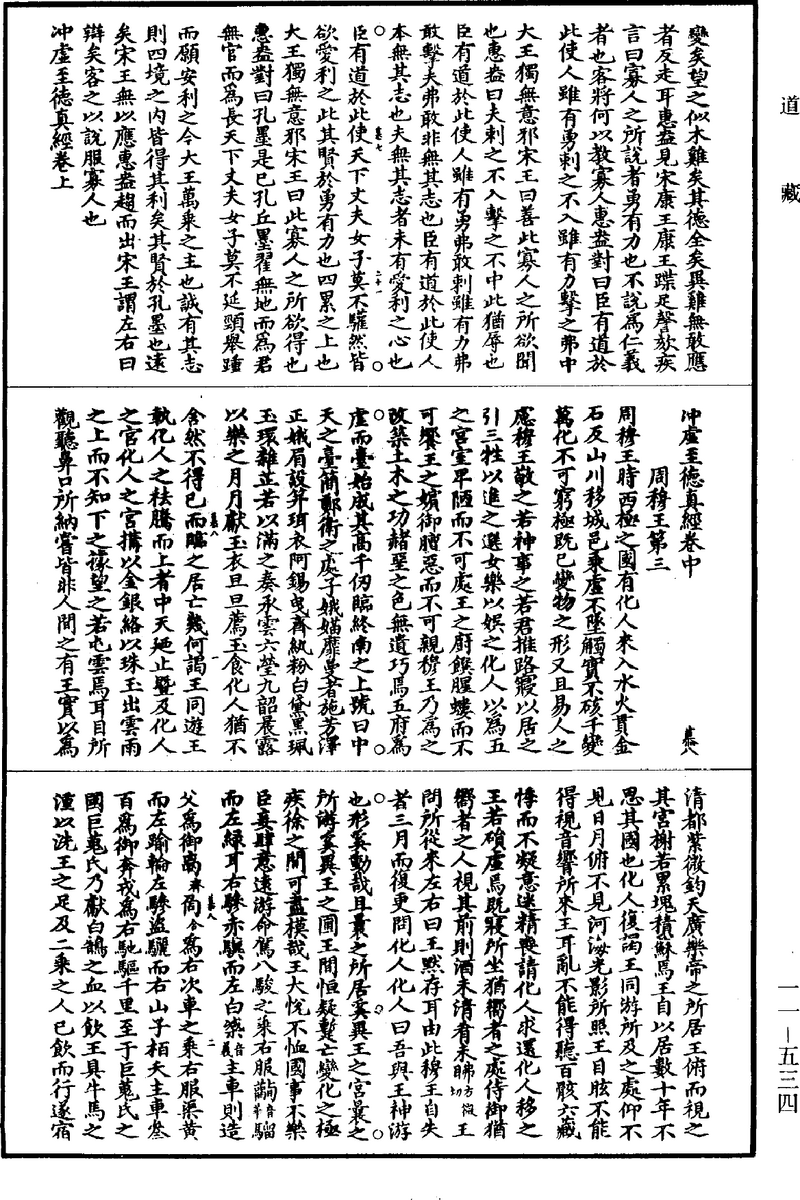 道藏
一一—五三四
變矣望之似木雞矣其德全矣異雞無敢應
者反走耳惠盎見宋康王康王蹀足謦欬疾
言曰寡人之所說者勇有力也不說為仁義
者也客將何以教寡人惠盎對曰臣有道於
此使人雖有勇刺之不入雖有力擊之弗中
大王獨無意邪宋王曰善此寡人之所欲聞
也惠盎曰夫刺之不入擊之不中此猶辱也
臣有道於此使人雖有勇弗敢刺雖有力弗
敢擊夫弗敢非無其志也臣有道於此使人
本無其志也夫無其志者未有愛利之心也
臣有道於此使天下丈夫女子莫不驩然皆
欲愛利之此其賢於勇有力也四累之上也
大王獨無意邪宋王曰此寡人之所欲得也
惠盎對曰孔墨是已孔丘墨翟無地而為君
無官而為長天下丈夫女子莫不延頸舉踵
而願安利之今大王萬乘之主也誠有其志
則四境之內皆得其利矣其賢於孔墨也遠
矣宋王無以應惠盎趨而出宋王謂左右曰
辯矣客之以說服寡人也
冲虛至德真經卷上
冲虛至德真經卷中
慕八
周穆王第三
周穆王時西極之國有化人來入水火貫金
石反山川移城邑乘虛不墜觸實不硋千變
萬化不可窮極既已變物之形又且易人之
慮穆王敬之若神事之若君推路寢以居之
引三牲以進之選女樂以娛之化人以為王
之宮室卑陋而不可處王之廚饌腥螻而不
可饗王之嬪御膻惡而不可親穆王乃為之
改築土木之功赭堊之色無遺巧焉五府為
虛而臺始成其高千仞臨終南之上號曰中
天之臺簡鄭衛之處子娥媌靡曼者施芳澤
正娥眉設笄珥衣阿錫曳齊紈粉白黛黑珮
玉環雜芷若以滿之奏承雲六瑩九韶晨露
以樂之月月獻玉衣旦旦薦玉食化人猶不
舍然不得已而臨之居亡幾何謁王同遊王
執化人之袪騰而上者中天廼止暨及化人
之宮化人之宮搆以金銀絡以珠玉出雲雨
之上而不知下之據望之若屯雲焉耳目所
觀聽鼻口所納嘗皆非人間之有王實以為
清都紫微鈞天廣樂帝之所居王俯而視之
其宮榭若累塊積蘇焉王自以居數十年不
思其國也化人復謁王同游所及之處仰不
見日月俯不見河海光影所照王目眩不能
得視音響所來王耳亂不能得聽百骸六藏
悸而不凝意迷精喪請化人求還化人移之
王若磒虛焉既寤所坐猶嚮者之處侍御猶
嚮者之人視其前則酒未清肴未昲方微切王
問所從來左右曰王默存耳由此穆王自失
者三月而復更問化人化人曰吾與王神游
也形奚動哉且曩之所居奚異王之宮曩之
所游奚異王之圃王間恒疑蹔亡變化之極
疾徐之間可盡模哉王大悅不恤國事不樂
臣妾肆意遠游命駕八駿之乘右服𦽊音華騮
而左綠耳右驂赤驥而左白𣚊音義主車則造
父為御𧮼𠱷為右次車之乘右服渠黃
而左踰輪左驂盜驪而右山子栢夭主車參
百為御奔戎為右馳驅千里至于巨蒐氏之
國巨蒐氏乃獻白鵠之血以飲王具牛馬之
湩以洗王之足及二乘之人已飲而行遂宿